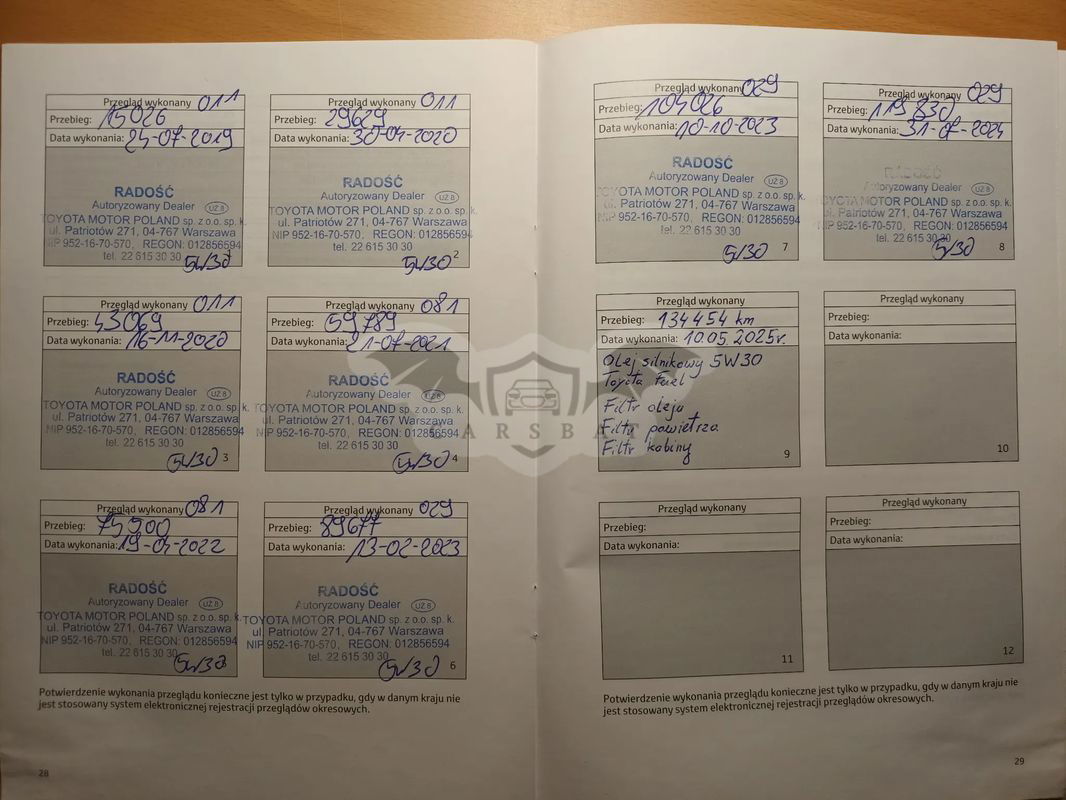 Przegląd wykonany 011
Przebieg: 15026
Data wykonania: 24-07-2019
RADOŚĆ
Autoryzowany Dealer UŻ 8
TOYOTA MOTOR POLAND sp. z o.o. sp. k.
ul. Patriotów 271, 04-767 Warszawa
NIP 952-16-70-570, REGON: 012856594
tel. 22 615 30 30
5W30 1
Przegląd wykonany 011
Przebieg: 29629
Data wykonania: 30-04-2020
RADOŚĆ
Autoryzowany Dealer UŻ 8
TOYOTA MOTOR POLAND sp. z o.o. sp. k.
ul. Patriotów 271, 04-767 Warszawa
NIP 952-16-70-570, REGON: 012856594
tel. 22 615 30 30
5W30 2
Przegląd wykonany 011
Przebieg: 43069
Data wykonania: 16-11-2020
RADOŚĆ
Autoryzowany Dealer UŻ 8
TOYOTA MOTOR POLAND sp. z o.o. sp. k.
ul. Patriotów 271, 04-767 Warszawa
NIP 952-16-70-570, REGON: 012856594
tel. 22 615 30 30
5W30 3
Przegląd wykonany 081
Przebieg: 59789
Data wykonania: 21-07-2021
RADOŚĆ
Autoryzowany Dealer UŻ 8
TOYOTA MOTOR POLAND sp. z o.o. sp. k.
ul. Patriotów 271, 04-767 Warszawa
NIP 952-16-70-570, REGON: 012856594
tel. 22 615 30 30
5W30 4
Przegląd wykonany 081
Przebieg: 75900
Data wykonania: 19-04-2022
RADOŚĆ
Autoryzowany Dealer UŻ 8
TOYOTA MOTOR POLAND sp. z o.o. sp. k.
ul. Patriotów 271, 04-767 Warszawa
NIP 952-16-70-570, REGON: 012856594
tel. 22 615 30 30
5W30
Przegląd wykonany 029
Przebieg: 89677
Data wykonania: 13-02-2023
RADOŚĆ
Autoryzowany Dealer UŻ 8
TOYOTA MOTOR POLAND sp. z o.o. sp. k.
ul. Patriotów 271, 04-767 Warszawa
NIP 952-16-70-570, REGON: 012856594
tel. 22 615 30 30
5W30 6
Potwierdzenie wykonania przeglądu konieczne jest tylko w przypadku, gdy w danym kraju nie
jest stosowany system elektronicznej rejestracji przeglądów okresowych.
28
Przegląd wykonany 029
Przebieg: 104026
Data wykonania: 10-10-2023
RADOŚĆ
Autoryzowany Dealer UŻ 8
TOYOTA MOTOR POLAND sp. z o.o. sp. k.
ul. Patriotów 271, 04-767 Warszawa
NIP 952-16-70-570, REGON: 012856594
tel. 22 615 30 30
5W30 7
Przegląd wykonany 029
Przebieg: 119830
Data wykonania: 31-07-2024
RADOŚĆ
Autoryzowany Dealer UŻ 8
TOYOTA MOTOR POLAND sp. z o.o. sp. k.
ul. Patriotów 271, 04-767 Warszawa
NIP 952-16-70-570, REGON: 012856594
tel. 22 615 30 30
5W30 8
Przegląd wykonany
Przebieg: 134454 km
Data wykonania: 10.05.2025r.
Olej silnikowy 5W30
Toyota Fuel
Filtr oleju
Filtr powietrza
Filtr kabiny
9
Przegląd wykonany
Przebieg:
Data wykonania:
10
Przegląd wykonany
Przebieg:
Data wykonania:
11
Przegląd wykonany
Przebieg:
Data wykonania:
12
Potwierdzenie wykonania przeglądu konieczne jest tylko w przypadku, gdy w danym kraju nie
jest stosowany system elektronicznej rejestracji przeglądów okresowych.
29
ARSBAT